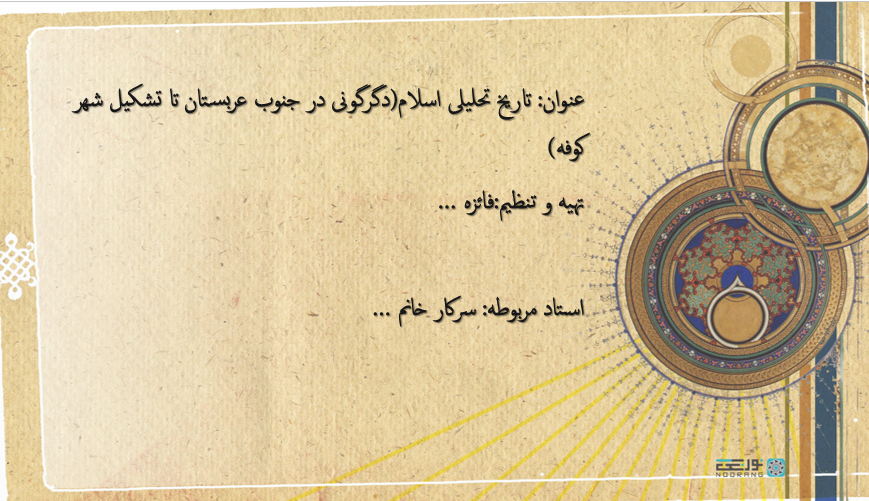 عنوان: تاریخ تحلیلی اسلام(دگرگونی در جنوب عربستان تا تشکیل شهر
کوفه)
تهیه و تنظیم:فائزه ...
استاد مربوطه: سرکار خانم ...
NOORANG